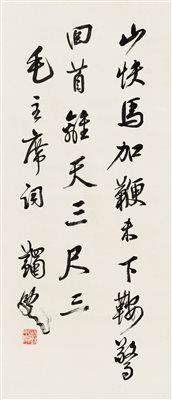 山快馬加鞭未下鞍驚
回首離天三尺三
毛主席詞 蠲叟